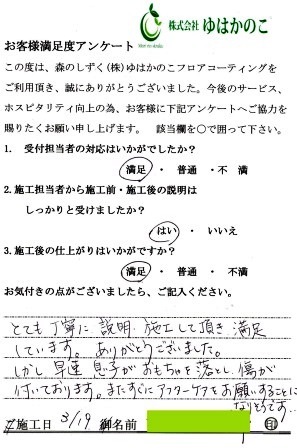 株式会社 ゆはかのこ
お客様満足度アンケート
この度は、森のしずく(株)ゆはかのこフロアコーティングを
ご利用頂き、誠にありがとうございました。今後のサービス、
ホスピタリティ向上の為、お客様に下記アンケートへご協力を
賜りたくお願い申し上げます。 該当欄を○で囲って下さい。
1. 受付担当者の対応はいかがでしたか?
満足 ・ 普通 ・不 満
2.施工担当者から施工前・施工後の説明は
しっかりと受けましたか?
はい ・ いいえ
3.施工後の仕上がりはいかがですか?
満足 ・ 普通 ・ 不 満
お気付きの点がございましたら、ご記入ください。
とても丁寧に説明、施工して頂き満足
しています。ありがとうございました。
しかし早速息子がおもちゃを落とし、傷が
付いております。またすぐにアフターケアをお願いすることに
なりそうです…
施工日 3/19 御名前 印